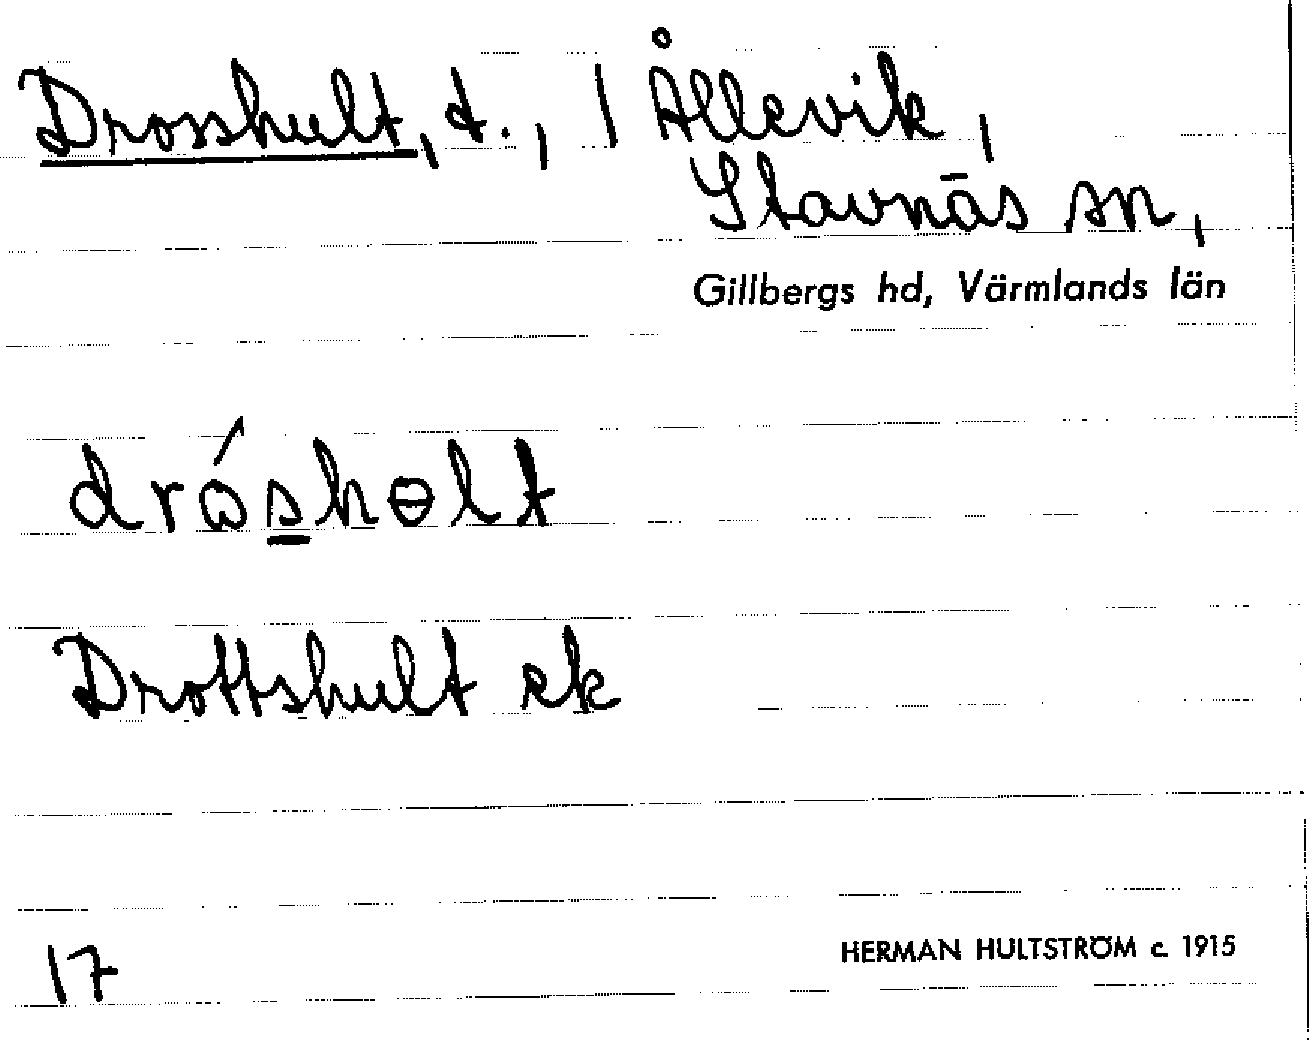 Drosshult, t., | Ållevik,
Stavnäs sn,
Gillbergs hd, Värmlands län
dråsholt
Drottshult ek
17
HERMAN HULTSTRÖM c. 1915